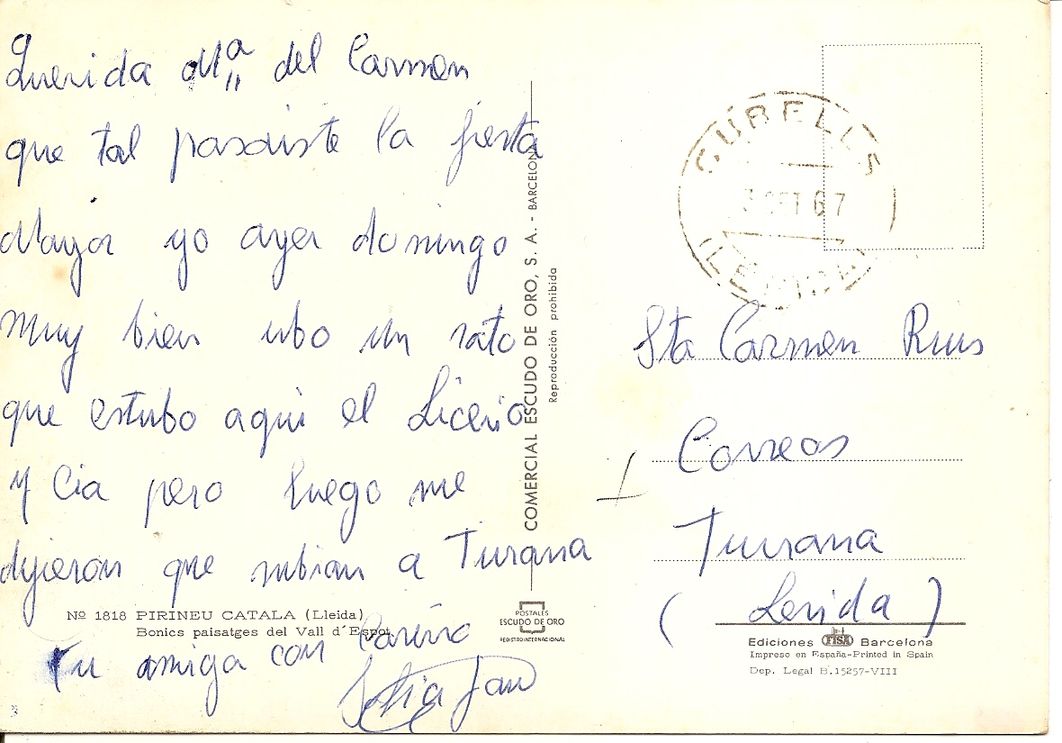 Querida Mª del Carmen
que tal pasaiste la fiesta
Mayor yo ayer domingo
muy bien ubo un rato
que estubo aqui el Licerio
y Cia pero luego me
dijieron que subian a Tiurana
Tu amiga con Cariño
Nº 1818 PIRINEU CATALA (Lleida)
Bonics paisatges del Vall d'Espot
COMERCIAL ESCUDO DE ORO, S. A. - BARCELONA
Reproducción prohibida
POSTALES
ESCUDO DE ORO
REGISTRO INTERNACIONAL
CUBELLS
SET 67
Sta Carmen Rius
Correos
Tiurana
(Lerida)
Ediciones FISA Barcelona
Impreso en España-Printed in Spain
Dep. Legal B.15257-VIII